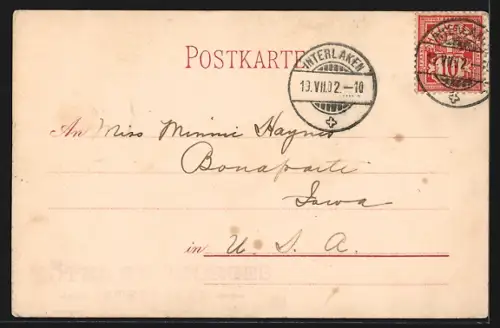 POSTKARTE
INTERLAKEN
19.VII.02.-10
10
An Miss Minnie Haynes
Bonaparte
Iowa
in U. S. A.